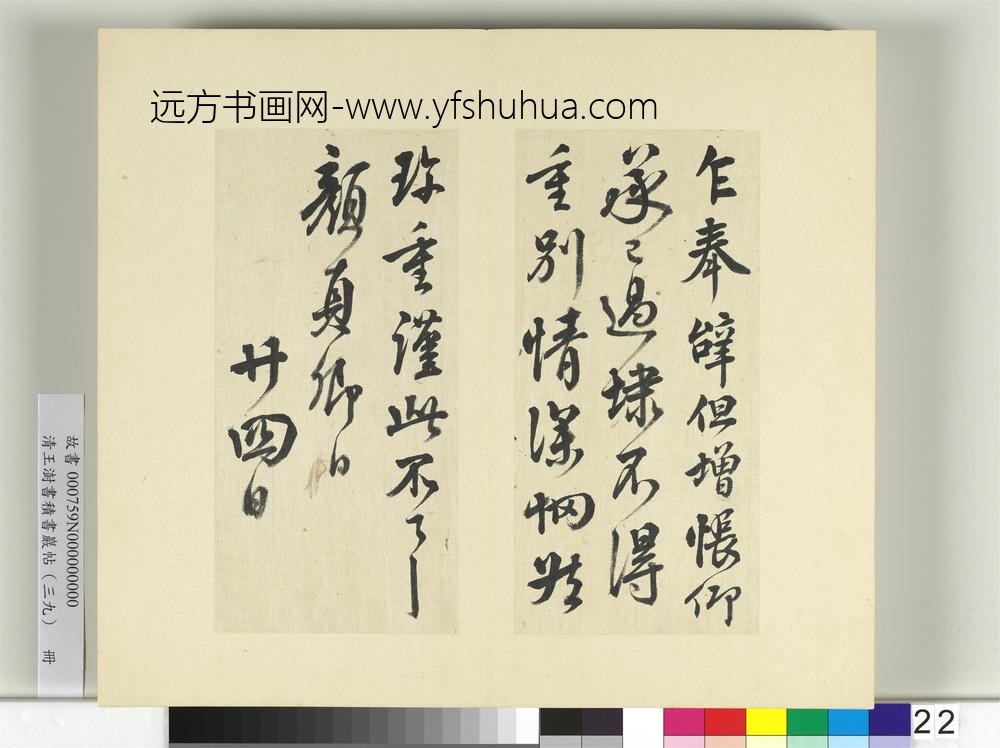 远方书画网-www.yfshuhua.com
乍奉辭但增悵仰
承已過埭不得
重別情深惘然
珍重謹此不
顏真卿白
廿四日
故書 000759N000000000
清王澍書積書巖帖（三九） 冊
22